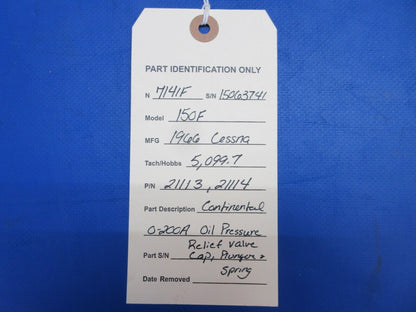 PART IDENTIFICATION ONLY
N 7141F S/N 15063741
Model 150F
MFG 1966 Cessna
Tach/Hobbs 5,099.7
P/N 21113, 21114
Part Description Continental
O-200A Oil Pressure
Relief Valve
Part S/N Cap, Plunger &
Spring
Date Removed